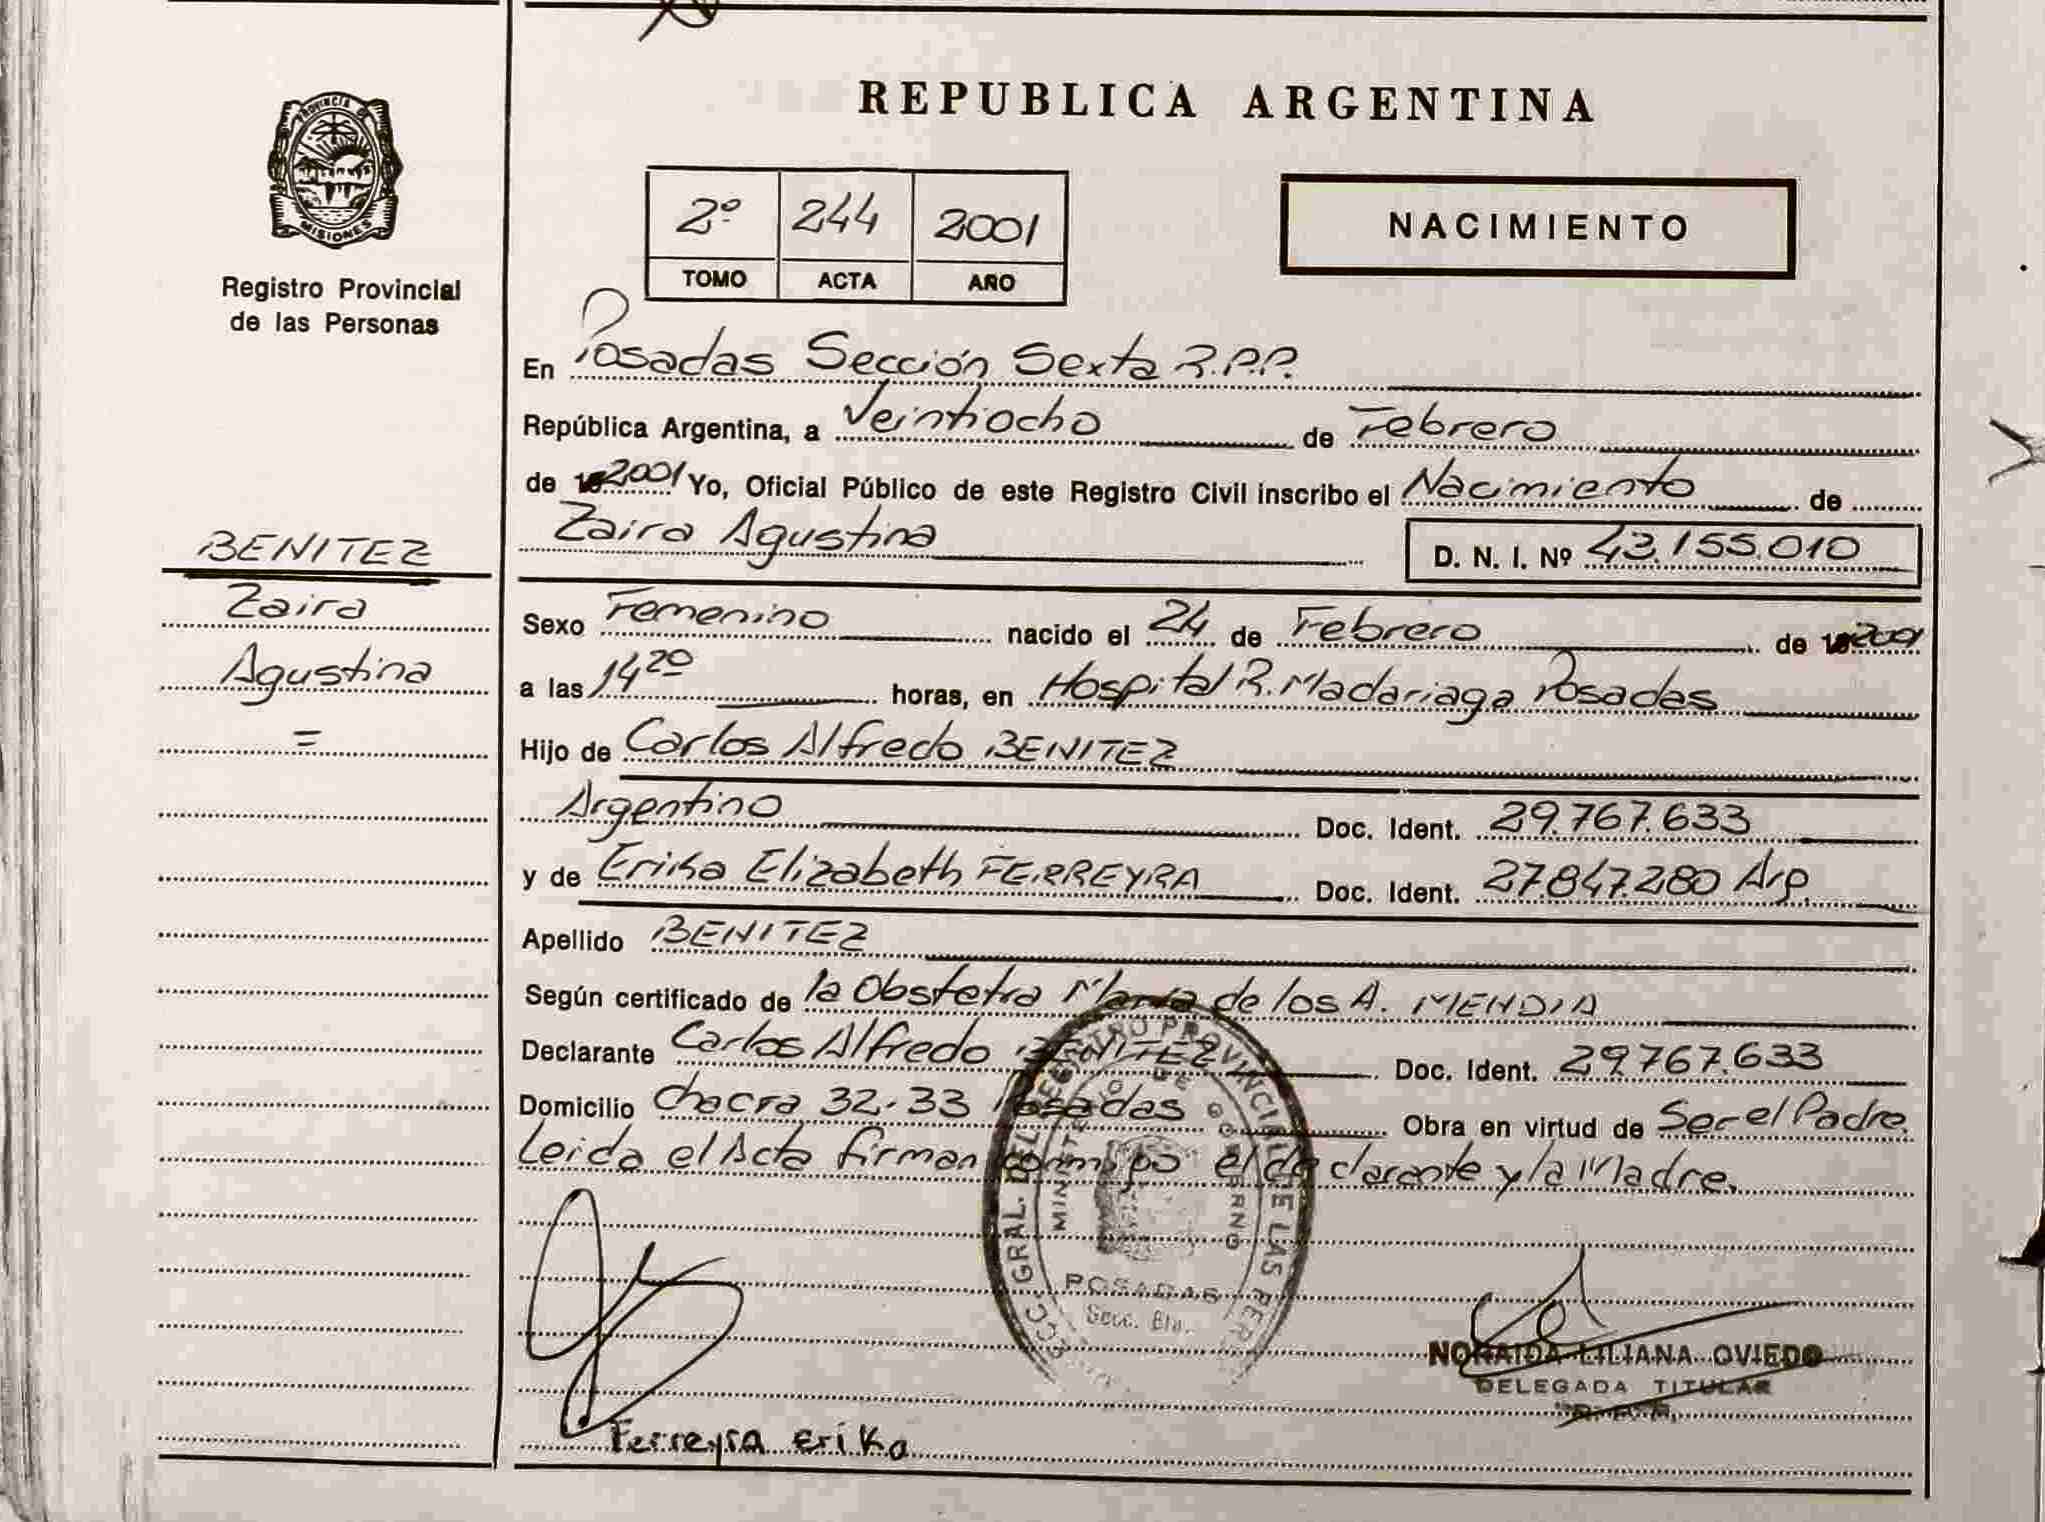 REPUBLICA ARGENTINA
PROVINCIA DE
MISIONES
Registro Provincial
de las Personas
2º 244 2001
TOMO ACTA AÑO
NACIMIENTO
En Posadas Sección Sexta R.P.P.
República Argentina, a Veintiocho de Febrero
de 2001 Yo, Oficial Público de este Registro Civil inscribo el Nacimiento de
Zaira Agustina D. N. I. Nº 43.155.010
BENITEZ
Zaira
Agustina
=
Sexo Femenino nacido el 24 de Febrero de 2001
a las 14 20 horas, en Hospital R. Madariaga Posadas
Hijo de Carlos Alfredo BENITEZ
Argentino Doc. Ident. 29.767.633
y de Erika Elizabeth FERREYRA Doc. Ident. 27.847.280 Arg.
Apellido BENITEZ
Según certificado de la Obstetra María de los A. MENDIA
Declarante Carlos Alfredo BENITEZ Doc. Ident. 29.767.633
Domicilio Chacra 32-33 Posadas Obra en virtud de Ser el Padre.
Leida el Acta firman conmigo el declarante y la Madre.
GRAL. DEL REGISTRO PROVINCIAL DE LAS PER
MINISTERIO DE GOBIERNO
POSADAS
Secc. 6ta.
NORAIDA LILIANA OVIEDO
DELEGADA TITULAR
Ferreyra Erika